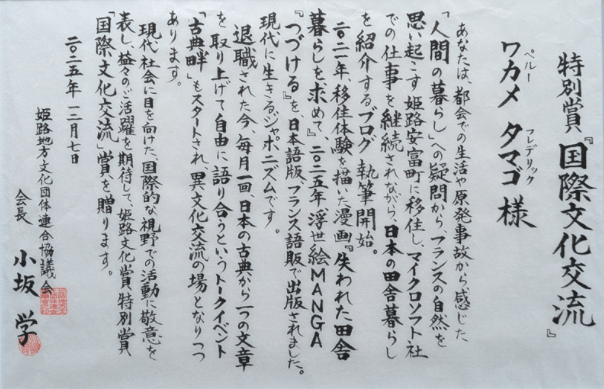 特別賞『国際文化交流』
ペルー フレデリック
ワカメ タマゴ 様
あなたは、都会での生活や原発事故から感じた
「人間の暮らし」への疑問から、フランスの自然を
思い起こす姫路安富町に移住し、マイクロソフト社
での仕事を継続されながら、日本の田舎暮らし
を紹介するブログ執筆開始。
二〇二一年、移住体験を描いた漫画『失われた田舎
暮らしを求めて』、二〇二五年浮世絵MANGA
『つづける』を日本語版、フランス語版で出版されました。
現代に生きるジャポニズムです。
退職された今、毎月一回、日本の古典から一つの文章
を取り上げて自由に語り合うというトークイベント
「古典畔」もスタートされ、異文化交流の場となりつつ
あります。
現代社会に目を向けた、国際的な視野での活動に敬意を
表し、益々のご活躍を期待して、姫路文化賞特別賞
「国際文化交流」賞を贈ります。
二〇二五年 十二月七日
姫路地方文化団体連合協議会
会長 小坂 学